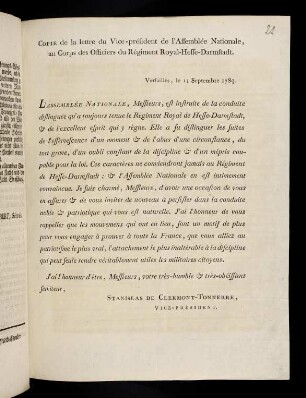 22
COPIE de la lettre du Vice-président de l'Assemblée Nationale,
au Corps des Officiers du Régiment Royal-Hesse-Darmstadt.
Versailles, le 13 Septembre 1789.
L'ASSEMBLÉE NATIONALE, Messieurs, est instruite de la conduite
distinguée qu'a toujours tenue le Régiment Royal de Hesse-Darmstadt,
& de l'excellent esprit qui y règne. Elle a su distinguer les suites
de l'effervescence d'un moment & de l'abus d'une circonstance, du
tort grave, d'un oubli constant de la discipline & d'un mépris cou-
pable pour la loi. Ces caractères ne conviendront jamais au Régiment
de Hesse-Darmstadt; & l'Assemblée Nationale en est intimement
convaincue. Je suis charmé, Messieurs, d'avoir une occasion de vous
en assurer & de vous inviter de nouveau à persister dans la conduite
noble & patriotique qui vous est naturelle. J'ai l'honneur de vous
rappeller que les mouvemens qui ont eu lieu, sont un motif de plus
pour vous engager à prouver à toute la France, que vous alliez au
patriotisme le plus vrai, l'attachement le plus inaltérable à la discipline
qui peut seule rendre véritablement utiles les militaires citoyens.
J'ai l'honneur d'être, Messieurs, votre très-humble & très-obéissant
serviteur,
STANISLAS DE CLERMONT-TONNERRE,
VICE-PRÉSIDENT.